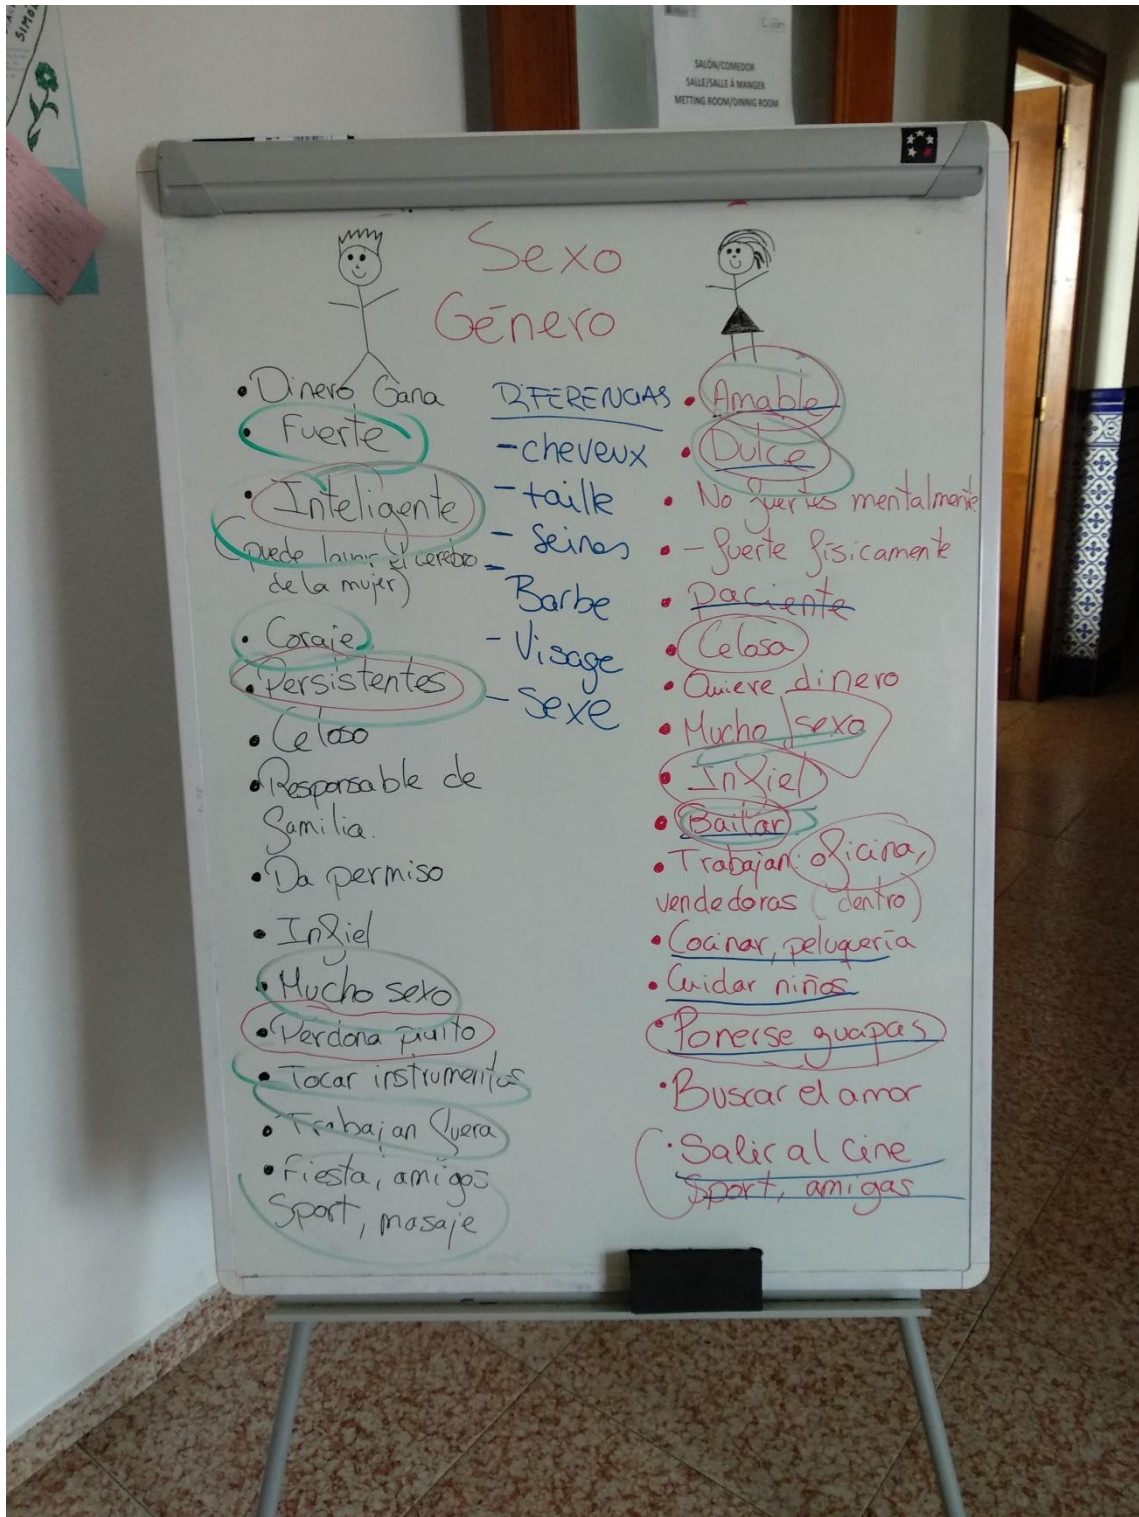 SIMÓN
SALÓN/COMEDOR
SALLE/SALLE À MANGER
METTING ROOM/DINNIG ROOM
Sexo
Género
• Dinero Gana
• Fuerte
• Inteligente
(puede lavar el cerebro
de la mujer)
• Coraje
• Persistentes
• Celoso
• Responsable de
familia.
• Da permiso
• Infiel
• Mucho sexo
• Perdona
• Tocar instrumentos
• Trabajan fuera
• Fiesta, amigos
Sport, masaje
DIFERENCIAS
- cheveux
- taille
- Seines
- Barbe
- Visage
- Sexe
• Amable
• Dulce
• No fuertes mentalmente
• - fuerte físicamente
• Paciente
• Celosa
• Quiere dinero
• Mucho sexo
• Infiel
• Bailar
• Trabajan: oficina,
vendedoras (dentro)
• Cocinar, peluquería
• Cuidar niños
• Ponerse guapas
• Buscar el amor
• Salir al cine
Sport, amigas